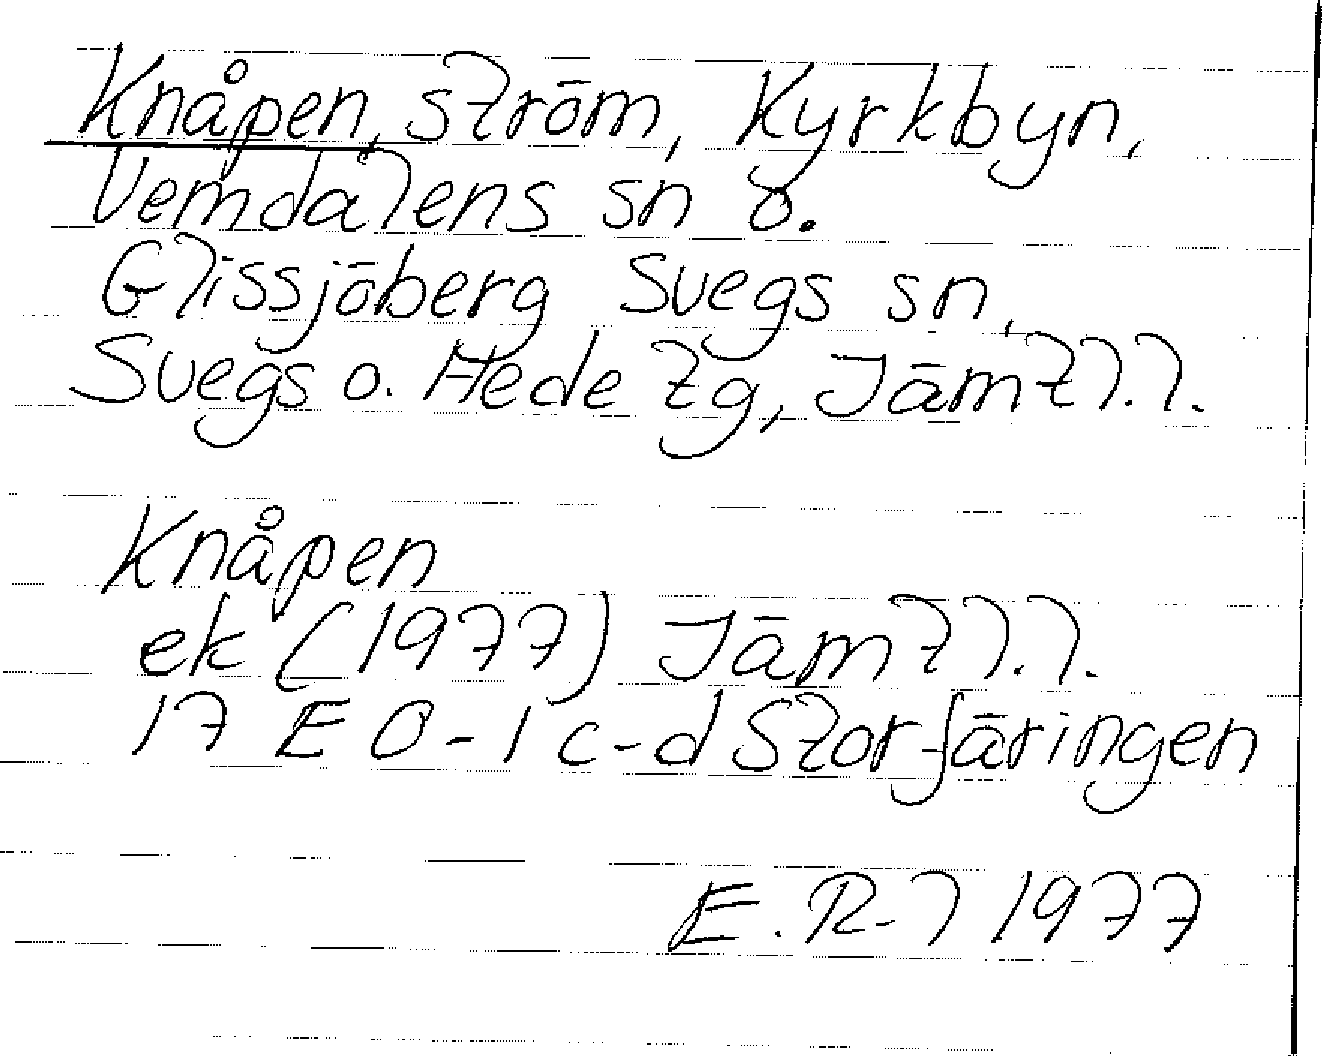 Knåpen, ström, Kyrkbyn,
Vemdalens sn o.
Glissjöberg Svegs sn,
Svegs o. Hede tg, Jämtl.l.
Knåpen
ek (1977) Jämtl.l.
17 E 0-1 c-d Storfäringen
E.R-l 1977